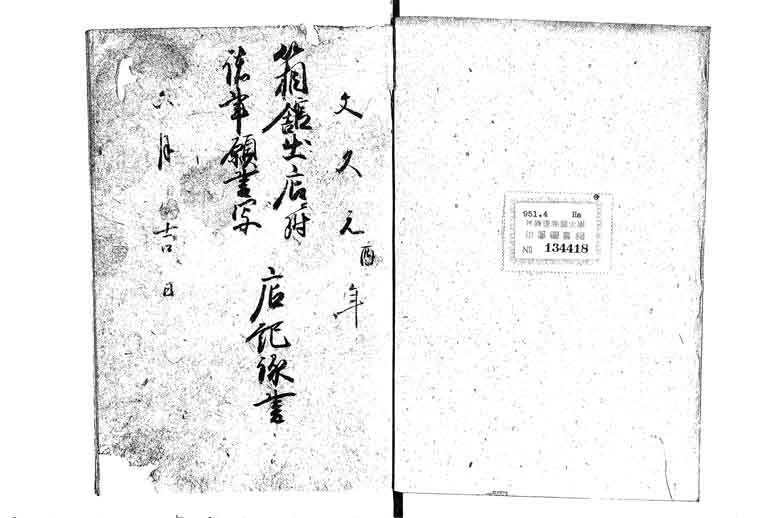 文久元酉年
箱舘出店ニ附
諸事願書写
店記録書
六月吉日
951.4 Ha
NO 134418